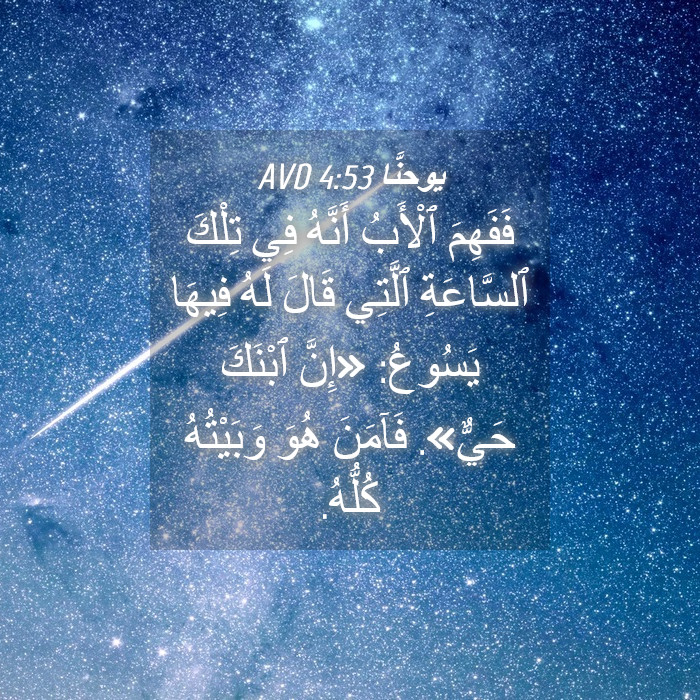 يوحنَّا 4:53 AVD
فَفَهِمَ ٱلْأَبُ أَنَّهُ فِي تِلْكَ
ٱلسَّاعَةِ ٱلَّتِي قَالَ لَهُ فِيهَا
يَسُوعُ: «إِنَّ ٱبْنَكَ
حَيٌّ». فَآمَنَ هُوَ وَبَيْتُهُ
كُلُّهُ.